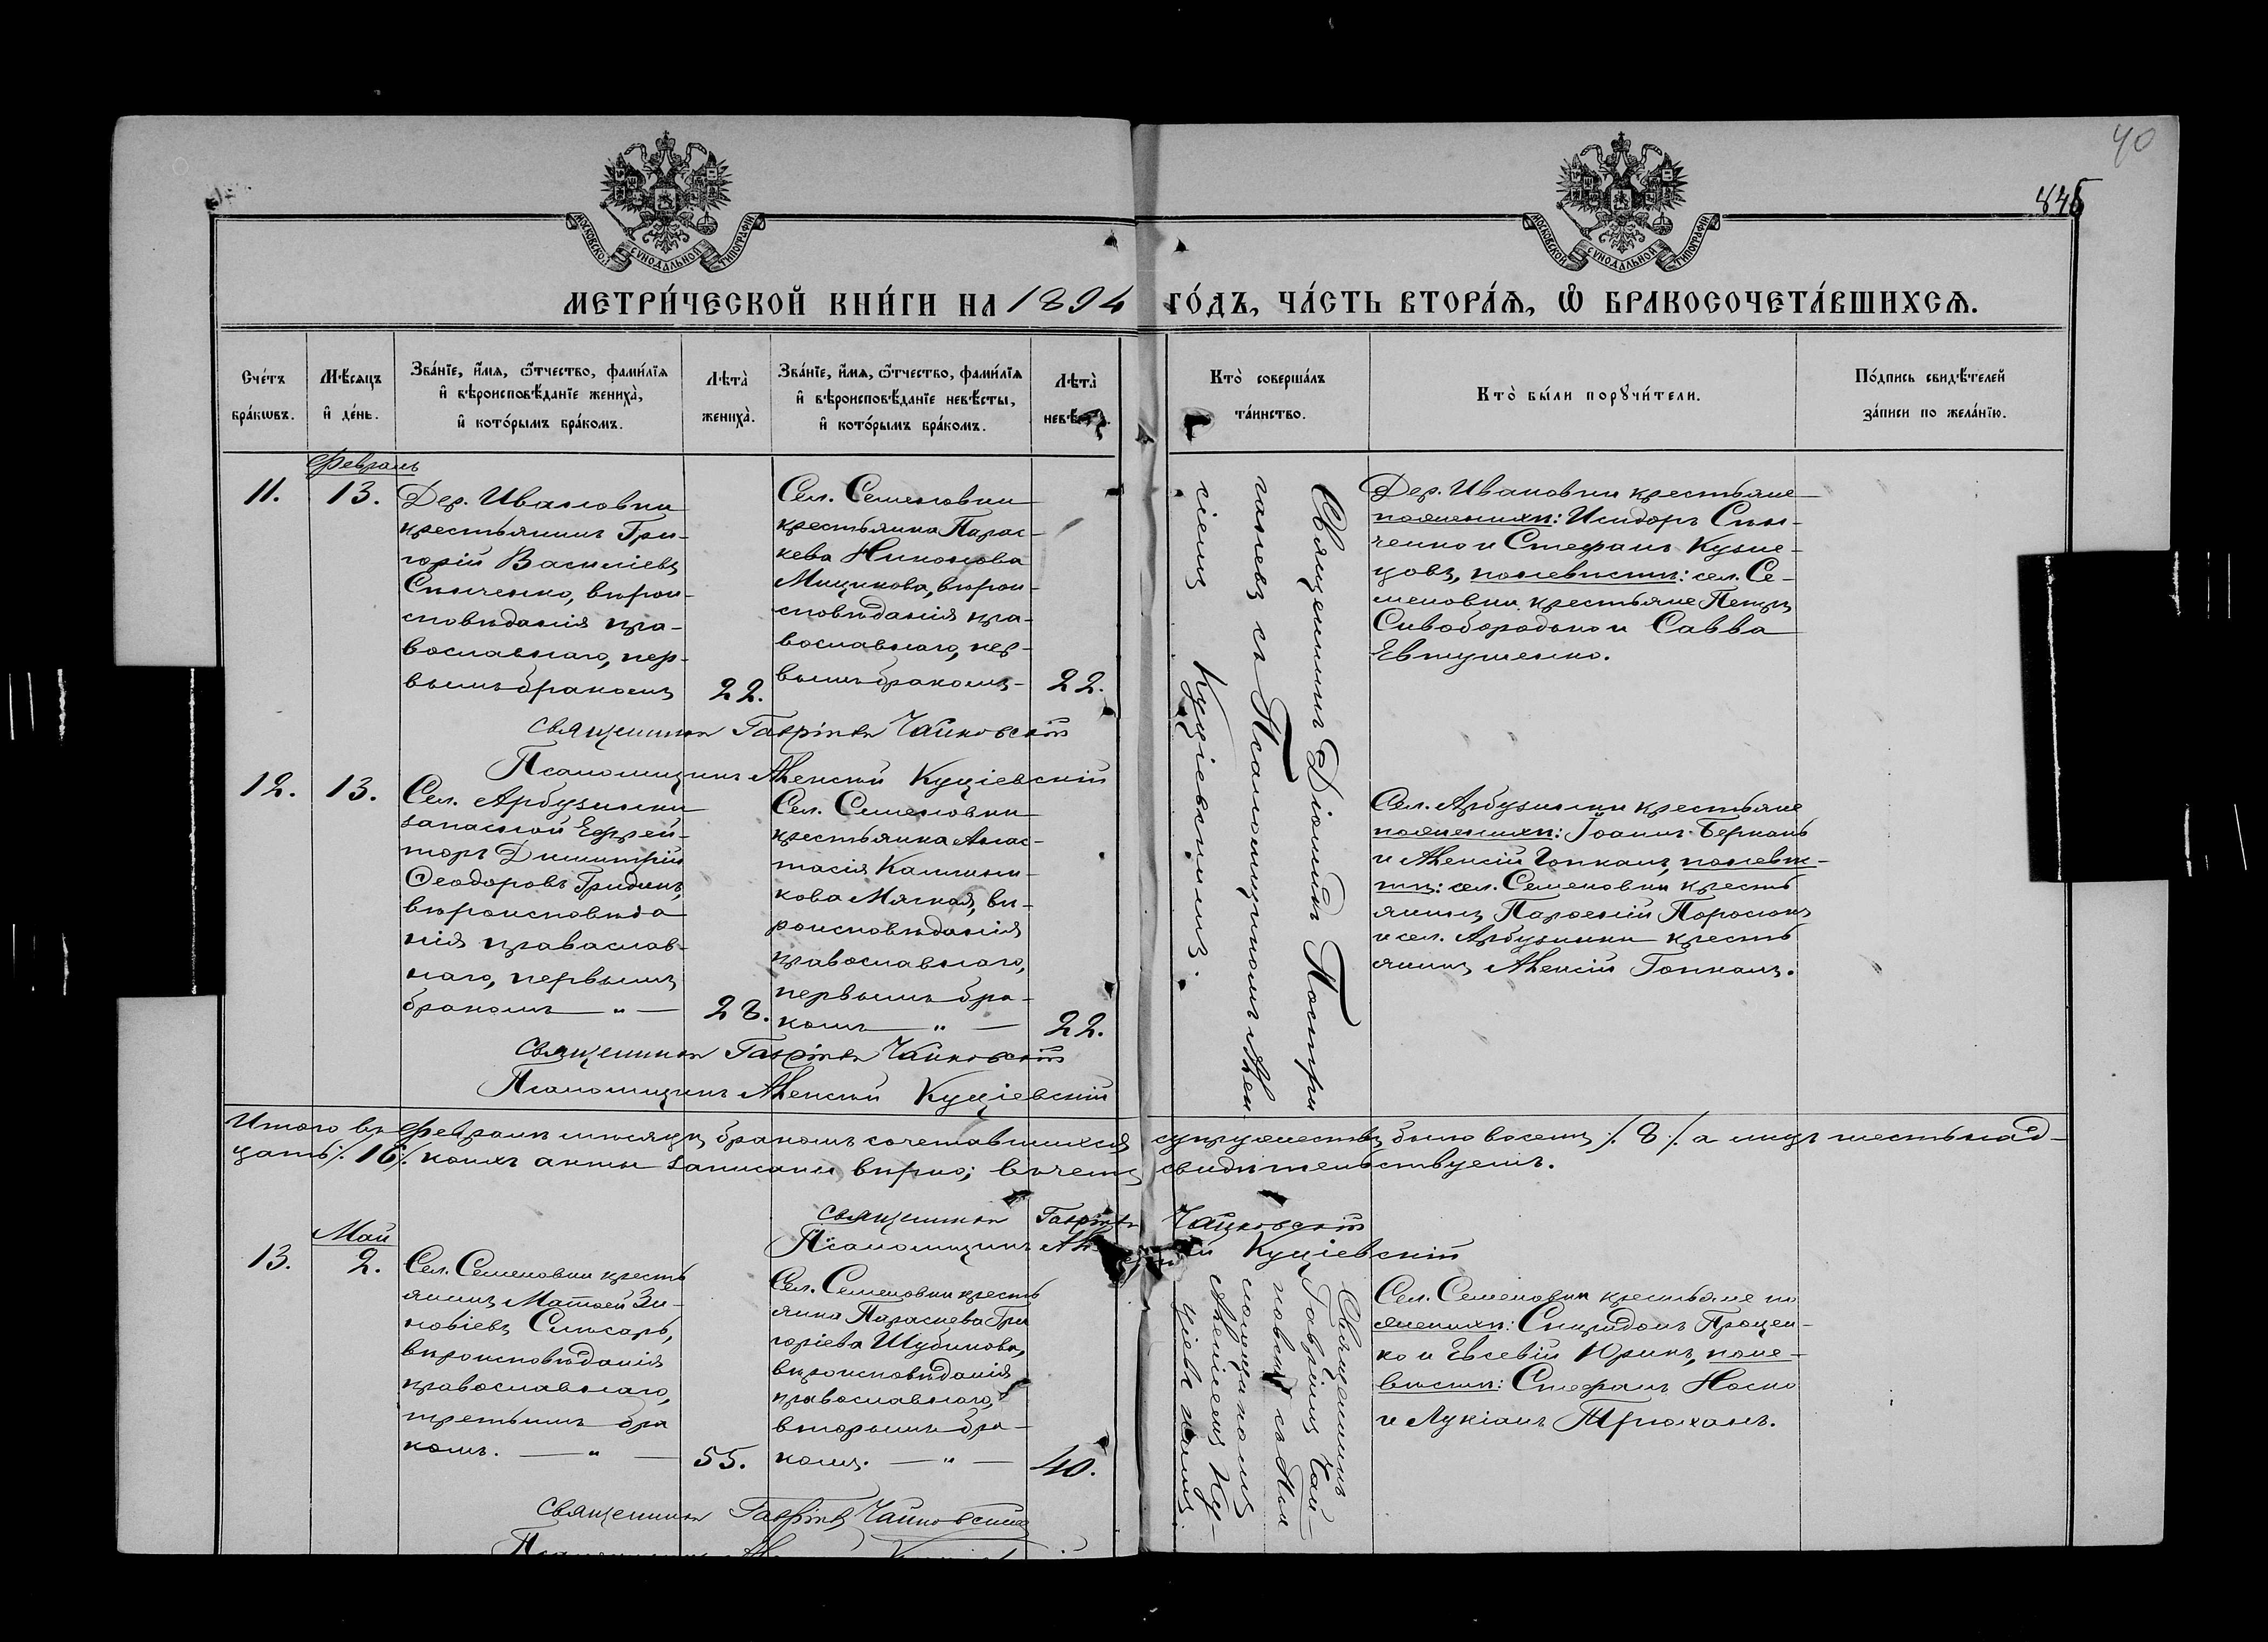 40
845
МОСКОВСКОЙ СѴНОДАЛЬНОЙ ТИПОГРАФІИ
МОСКОВСКОЙ СѴНОДАЛЬНОЙ ТИПОГРАФІИ
МЕТРИ́ЧЕСКОЙ КНИ́ГИ НА 1894 ГО́ДЪ, ЧА́СТЬ ВТОРА́Ѧ, Ѿ БРАКОСОЧЕТА́ВШИХСѦ.
Сче́тъ
бра́кѡвъ.
Мѣ́сяцъ
и҆ де́нь.
Зва́нїе, и҆́мѧ, ѻ҆́тчество, фами́лїѧ
и҆ вѣроисповѣ́данїе жениха̀,
и҆ кото́рымъ бра́комъ.
Лѣта̀
жениха̀.
Зва́нїе, и҆́мѧ, ѻ҆́тчество, фами́лїѧ
и҆ вѣроисповѣ́данїе невѣ́сты,
и҆ кото́рымъ бра́комъ.
Лѣта̀
невѣ́
Кто̀ соверша́лъ
та́инство.
Кто̀ бы́ли порꙋчи́тели.
По́дпись свидѣ́телей
за́писи по жела́нїю.
Февраль
11.
13.
Дер. Ивановки
крестьянинъ Гри-
горій Василіевъ
Синченко, вѣрои-
сповѣданія пра-
вославнаго, пер-
вымъ бракомъ
22.
Сел. Семеновки
крестьянка Парас-
кева Никонова
Мицикова, вѣрои-
сповѣданія пра-
вославнаго, пер-
вымъ бракомъ
22.
Священникъ Діонисій Постри
гачевъ съ Псаломщикомъ Алек
сіемъ Куціевскимъ.
Дер. Ивановки крестьяне
по женихѣ: Исидоръ Син-
ченко и Стефанъ Кузне-
цовъ, по невѣстѣ: сел. Се-
меновки крестьяне Петръ
Сивобородько и Савва
Евтушенко.
Священникъ Гавріилъ Чайковскій
Псаломщикъ Алексій Куціевскій
12.
13.
Сел. Арбузинки
запасной Ефрей-
торъ Димитрій
Ѳеодоровъ Гридинъ,
вѣроисповѣда
нія православ-
наго, первымъ
бракомъ — „ —
28.
Сел. Семеновки
крестьянка Анас-
тасія Каллини-
кова Мягкая, вѣ-
роисповѣданія
православнаго,
первымъ бра-
комъ — „ —
22.
Сел. Арбузинки крестьяне
по женихѣ: Іоаннъ Беркань
и Алексій Гопканъ, по невѣс-
тѣ: сел. Семеновки кресть
янинъ Парѳеній Поросюкъ
и сел. Арбузинки кресть
янинъ Алексій Гопканъ.
Священникъ Гавріилъ Чайковскій
Псаломщикъ Алексій Куціевскій
Итого въ Февралѣ мѣсяцѣ бракомъ сочетавшихся супружествъ было восемь ·/. 8 ·/. а лицъ шестьнад-
цать ·/. 16 ·/. коихъ акты записаны вѣрно; въ чемъ свидѣтельствуемъ.
Священникъ Гавріилъ Чайковскій
Псаломщикъ Куціевскій
Май
13.
2.
Сел. Семеновки кресть
янинъ Матѳей Зи-
новіевъ Слюсарь,
вѣроисповѣданія
православнаго,
третьимъ бра
комъ. — „ —
55.
Сел. Семеновки кресть
янка Параскева Гри
горіева Шубикова,
вѣроисповѣданія
православнаго,
вторымъ бра-
комъ. — „ —
40.
Священникъ
Гавріилъ Чай-
ковскій съ Пса
ломщикомъ
Алексіемъ Ку-
ціевскимъ.
Сел. Семеновки крестьяне по
женихѣ: Спиридонъ Процен-
ко и Евсевій Юрикъ, по не-
вѣстѣ: Стефанъ Носко
и Лукіанъ Трюханъ.
Священникъ Гавріилъ Чайковскій